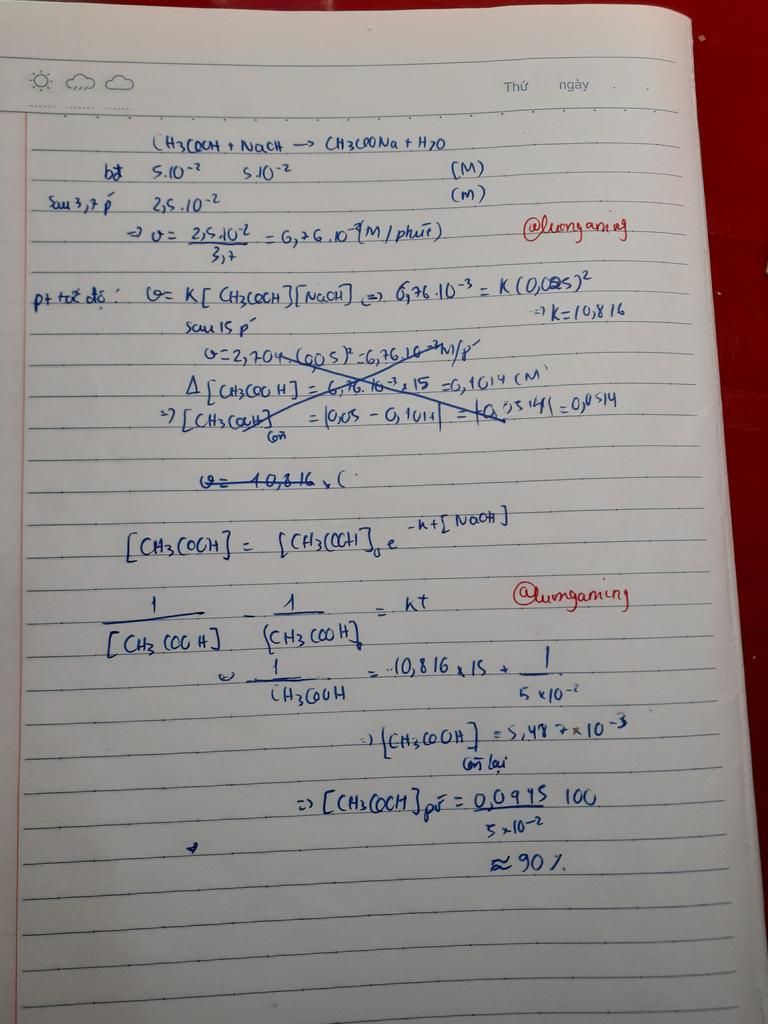 Thứ ngày . .
CH3COOH + NaOH → CH3COONa + H2O
bđ 5.10⁻² 5.10⁻² (M)
Sau 3,7 p' 2,5.10⁻² (M)
⇒ v = 2,5.10⁻² / 3,7 = 6,76.10⁻³ (M/phút)
@luongaming
pt tốc độ: v = K[CH3COOH][NaOH] ⇔ 6,76.10⁻³ = K(0,025)²
⇒ k = 10,816
sau 15 p'
v = 2,704.(0,05)² = 6,76.10⁻³ M/p'
Δ[CH3COOH] = 6,76.10⁻³ x 15 = 0,1014 (M)
⇒ [CH3COOH] còn = |0,05 - 0,1014| = |0,0514| = 0,0514
v = 10,816 x (
[CH3COOH] = [CH3COOH]₀ e^-kt[NaOH]
1 / [CH3COOH] - 1 / [CH3COOH]₀ = kt
@luongaming
1 / CH3COOH = 10,816 x 15 + 1 / 5x10⁻²
⇒ [CH3COOH] còn lại = 5,487 x 10⁻³
⇒ [CH3COOH] pứ = 0,0945 / 5x10⁻² 100
≈ 90 %.